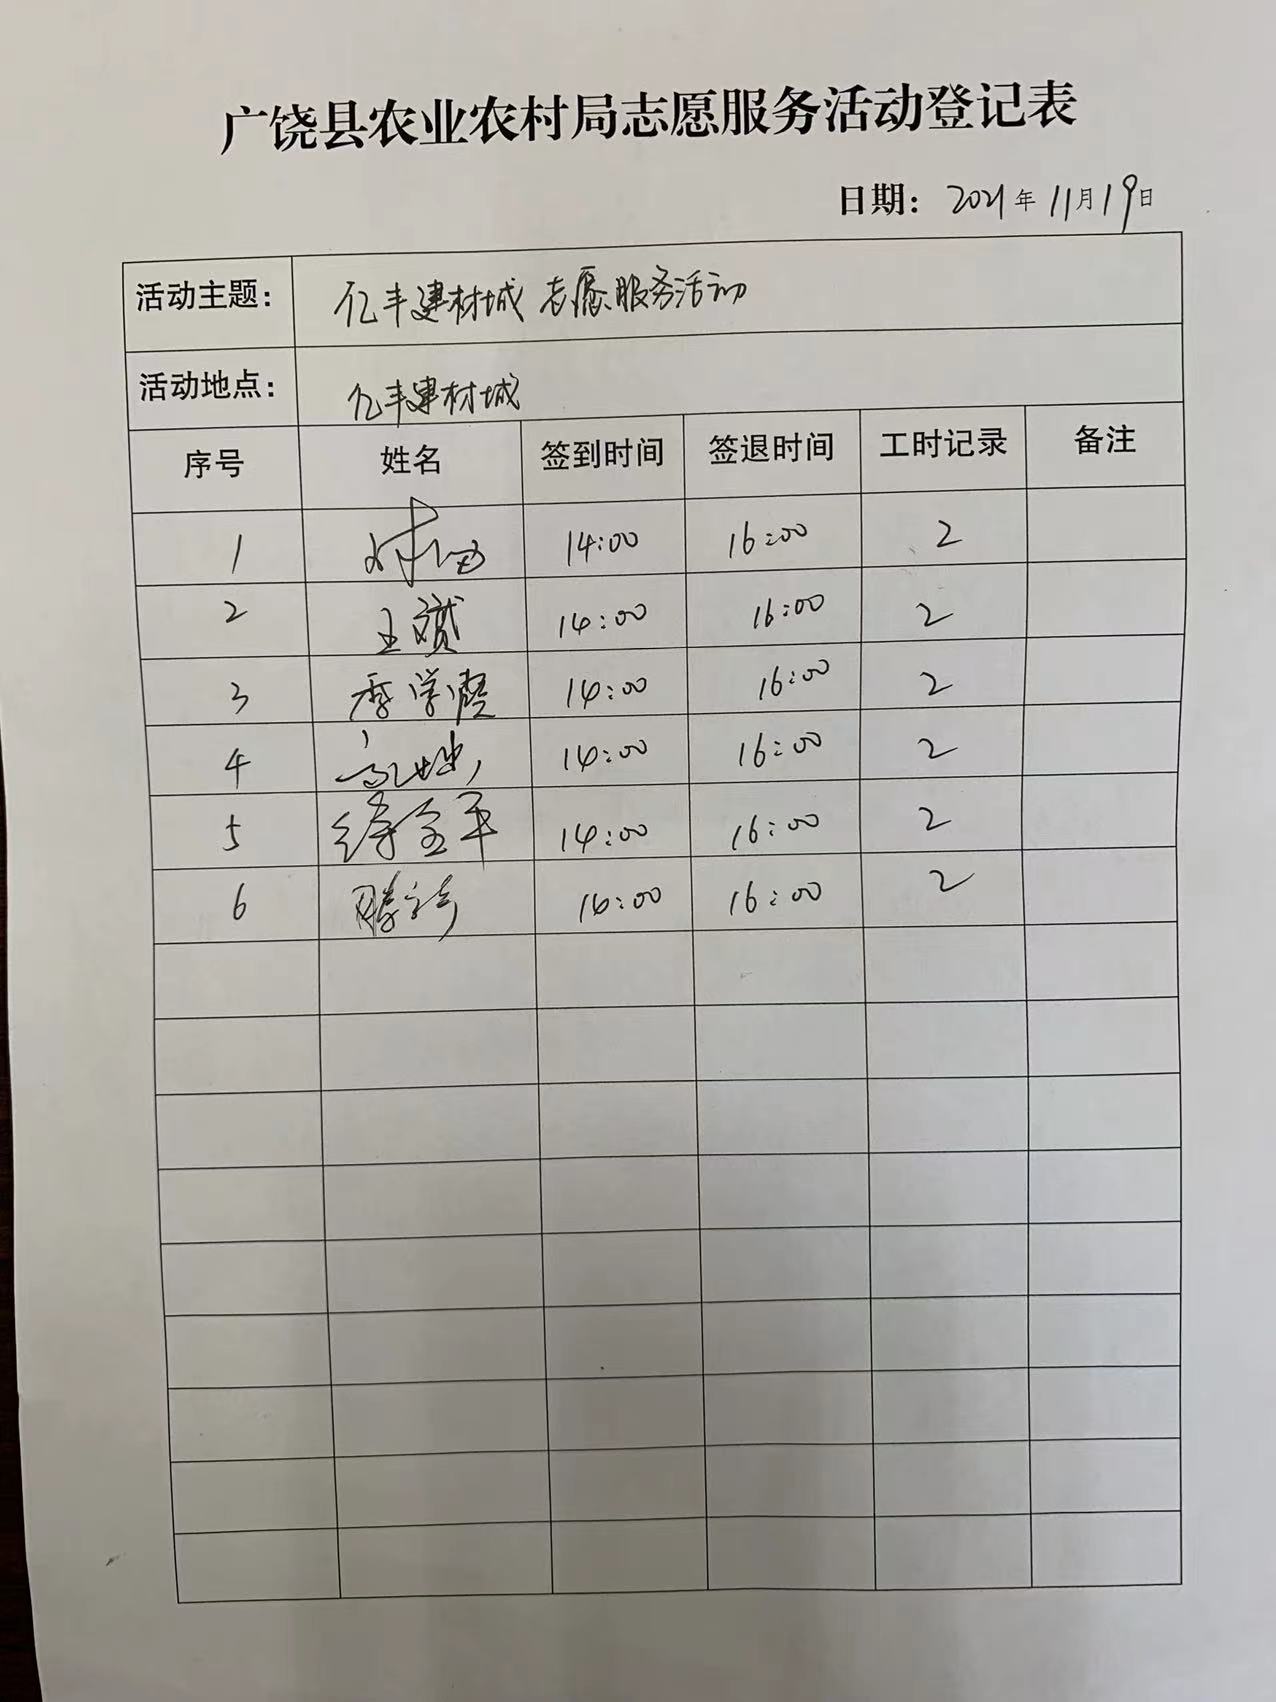 广饶县农业农村局志愿服务活动登记表
日期： 2021年11月19日
活动主题： 亿丰建材城志愿服务活动
活动地点： 亿丰建材城
序号 姓名 签到时间 签退时间 工时记录 备注
1 14:00 16:00 2
2 王斌 14:00 16:00 2
3 李学霞 14:00 16:00 2
4 14:00 16:00 2
5 14:00 16:00 2
6 14:00 16:00 2